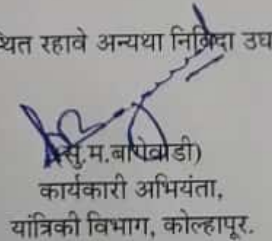 थित रहावे अन्यथा निविदा उघ
सु.म.बागेवाडी)
कार्यकारी अभियंता,
यांत्रिकी विभाग, कोल्हापूर.